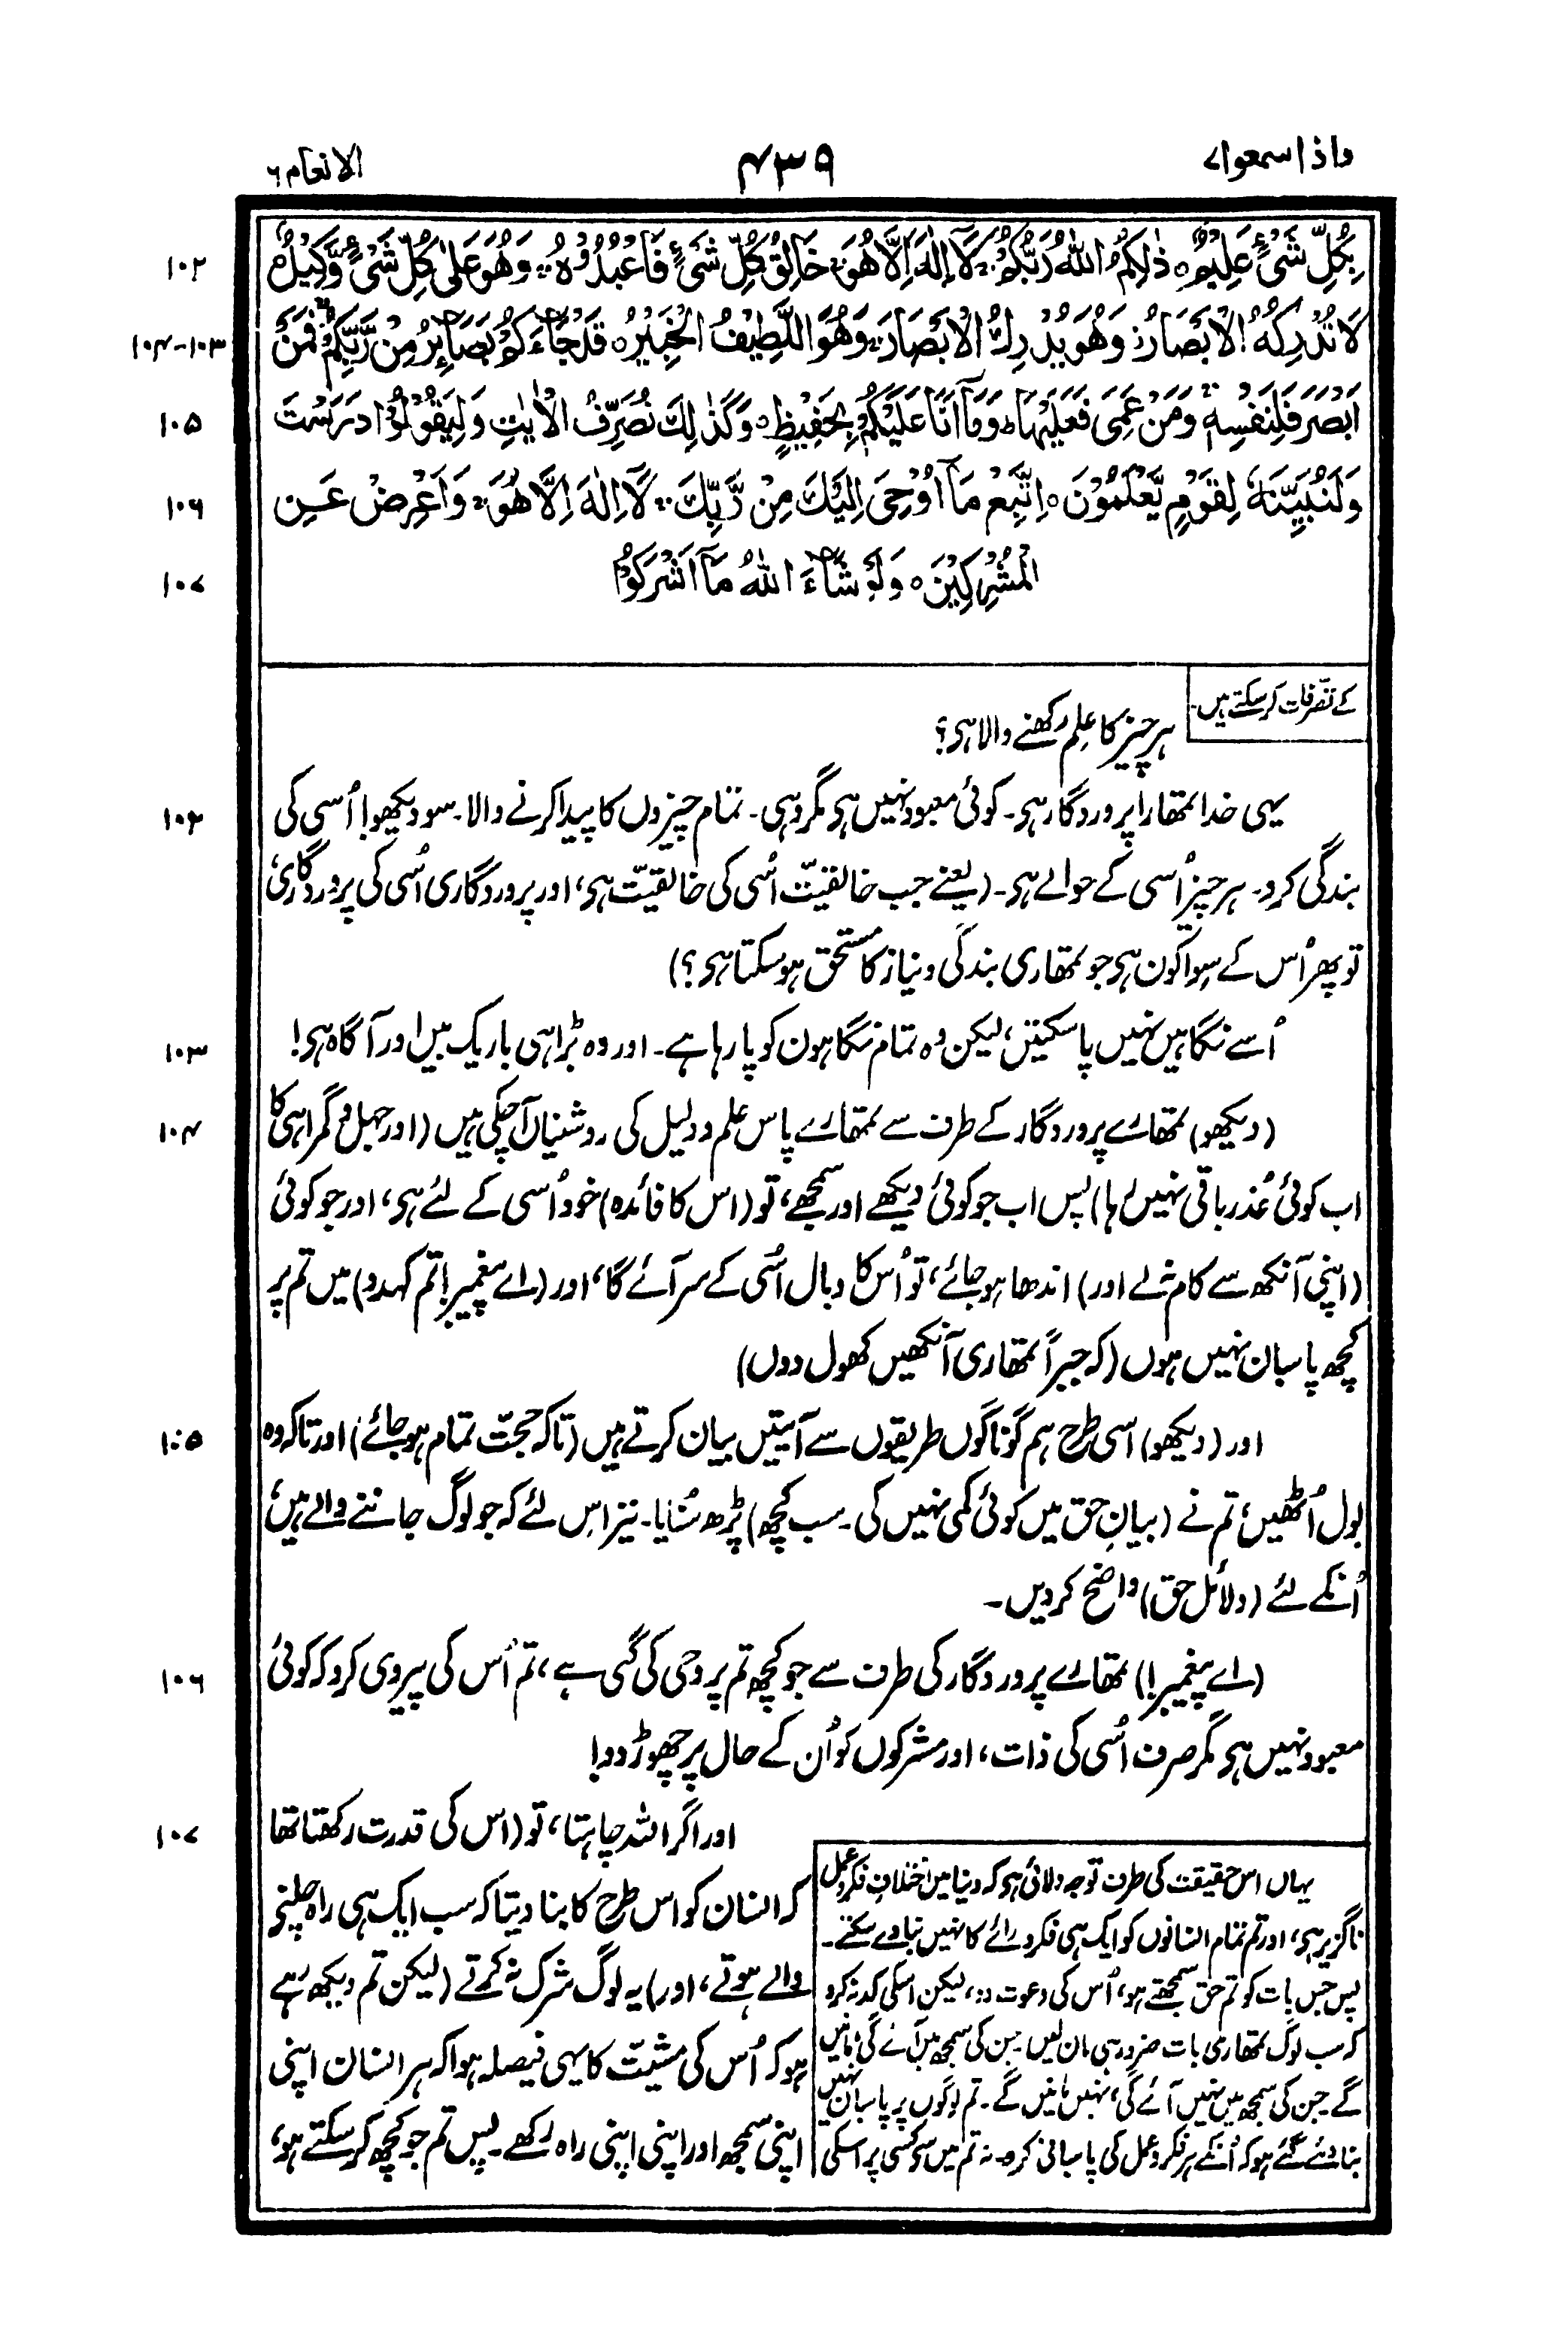 واذا سمعوا ۷
۴۳۹
الانعام ۶
بِكُلِّ شَيْءٍ عَلِيْمٌ ○ ذٰلِكُمُ اللّٰهُ رَبُّكُمْ ۚ لَآ اِلٰهَ اِلَّا هُوَ ۚ خَالِقُ كُلِّ شَيْءٍ فَاعْبُدُوْهُ ۚ وَهُوَ عَلٰى كُلِّ شَيْءٍ وَّكِيْلٌ ○
۱۰۲
لَا تُدْرِكُهُ الْاَبْصَارُ ۡ وَهُوَ يُدْرِكُ الْاَبْصَارَ ۚ وَهُوَ اللَّطِيْفُ الْخَبِيْرُ ○ قَدْ جَآءَكُمْ بَصَآئِرُ مِنْ رَّبِّكُمْ ۚ فَمَنْ
۱۰۳-۱۰۴
اَبْصَرَ فَلِنَفْسِهٖ ۚ وَمَنْ عَمِيَ فَعَلَيْهَا ؕ وَمَآ اَنَا عَلَيْكُمْ بِحَفِيْظٍ ○ وَكَذٰلِكَ نُصَرِّفُ الْاٰيٰتِ وَلِيَقُوْلُوْا دَرَسْتَ
۱۰۵
وَلِنُبَيِّنَهٗ لِقَوْمٍ يَّعْلَمُوْنَ ○ اِتَّبِعْ مَآ اُوْحِيَ اِلَيْكَ مِنْ رَّبِّكَ ۚ لَآ اِلٰهَ اِلَّا هُوَ ۚ وَاَعْرِضْ عَنِ
۱۰۶
الْمُشْرِكِيْنَ ○ وَلَوْ شَآءَ اللّٰهُ مَآ اَشْرَكُوْا
۱۰۷
کے تصرفات کر سکتے ہیں۔
ہر چیز کا علم رکھنے والا ہی؟
یہی خدا تمھارا پروردگار ہی۔ کوئی معبود نہیں ہی مگر وہی۔ تمام چیزوں کا پیدا کرنے والا۔ سو دیکھو! اُسی کی
۱۰۲
بندگی کرو۔ ہر چیز اُسی کے حوالے ہی۔ (یعنے جب خالقیّت اُسی کی خالقیّت ہی، اور پروردگاری اُسی کی پروردگاری،
تو پھر اُس کے سوا کون ہی جو تمھاری بندگی و نیاز کا مستحق ہو سکتا ہی؟)
اُسے نگاہیں نہیں پا سکتیں، لیکن وہ تمام نگاہوں کو پا رہا ہے۔ اور وہ بڑا ہی باریک بیں اور آگاہ ہی!
۱۰۳
(دیکھو) تمھارے پروردگار کے طرف سے تمھارے پاس علم و دلیل کی روشنیاں آ چکی ہیں (اور جہل و گمراہی کا
۱۰۴
اب کوئی عُذر باقی نہیں رہا) پس اب جو کوئی دیکھے اور سمجھے، تو (اس کا فائدہ) خود اُسی کے لئے ہی، اور جو کوئی
(اپنی آنکھ سے کام نہ لے اور) اندھا ہو جائے، تو اُس کا وبال اُسی کے سر آئے گا، اور (اے پیغمبر! تم کہدو) میں تم پر
کچھ پاسبان نہیں ہوں (کہ جبراً تمھاری آنکھیں کھول دوں)
اور (دیکھو) اسی طرح ہم گوناگوں طریقوں سے آیتیں بیان کرتے ہیں (تاکہ حجّت تمام ہو جائے) اور تاکہ وہ
۱۰۵
بول اُٹھیں، تم نے (بیانِ حق میں کوئی کمی نہیں کی۔ سب کچھ) پڑھ سُنایا۔ نیز اس لئے کہ جو لوگ جاننے والے ہیں،
اُنکے لئے (دلائل حق) واضح کر دیں۔
(اے پیغمبر!) تمھارے پروردگار کی طرف سے جو کچھ تم پر وحی کی گئی ہے، تم اُس کی پیروی کرو کہ کوئی
۱۰۶
معبود نہیں ہی مگر صرف اُسی کی ذات، اور مشرکوں کو اُن کے حال پر چھوڑ دو!
اور اگر اللہ چاہتا، تو (اس کی قدرت رکھتا تھا
۱۰۷
کہ انسان کو اس طرح کا بنا دیتا کہ سب ایک ہی راہ چلنے
والے ہوتے، اور) یہ لوگ شرک نہ کرتے (لیکن تم دیکھ رہے
ہو کہ اُس کی مشیّت کا یہی فیصلہ ہوا کہ ہر انسان اپنی
اپنی سمجھ اور اپنی اپنی راہ رکھے۔ پس تم جو کچھ کر سکتے ہو،
یہاں اس حقیقت کی طرف توجہ دلائی ہی کہ دنیا میں اختلافِ فکر و عمل
ناگزیر ہی، اور تم تمام انسانوں کو ایک ہی فکر و رائے کا نہیں بنا دے سکتے۔
پس جس بات کو تم حق سمجھتے ہو، اُس کی دعوت دو، لیکن اسکی کد نہ کرو
کہ سب لوگ تمھاری بات ضرور ہی مان لیں۔ جن کی سمجھ میں آئے گی، مانیں
گے۔ جن کی سمجھ میں نہیں آئے گی، نہیں مانیں گے۔ تم لوگوں پر پاسبان نہیں
بنا دئے گئے ہو کہ اُنکے ہر فکر و عمل کی پاسبانی کرو۔ نہ تم میں سے کسی پر اسکی